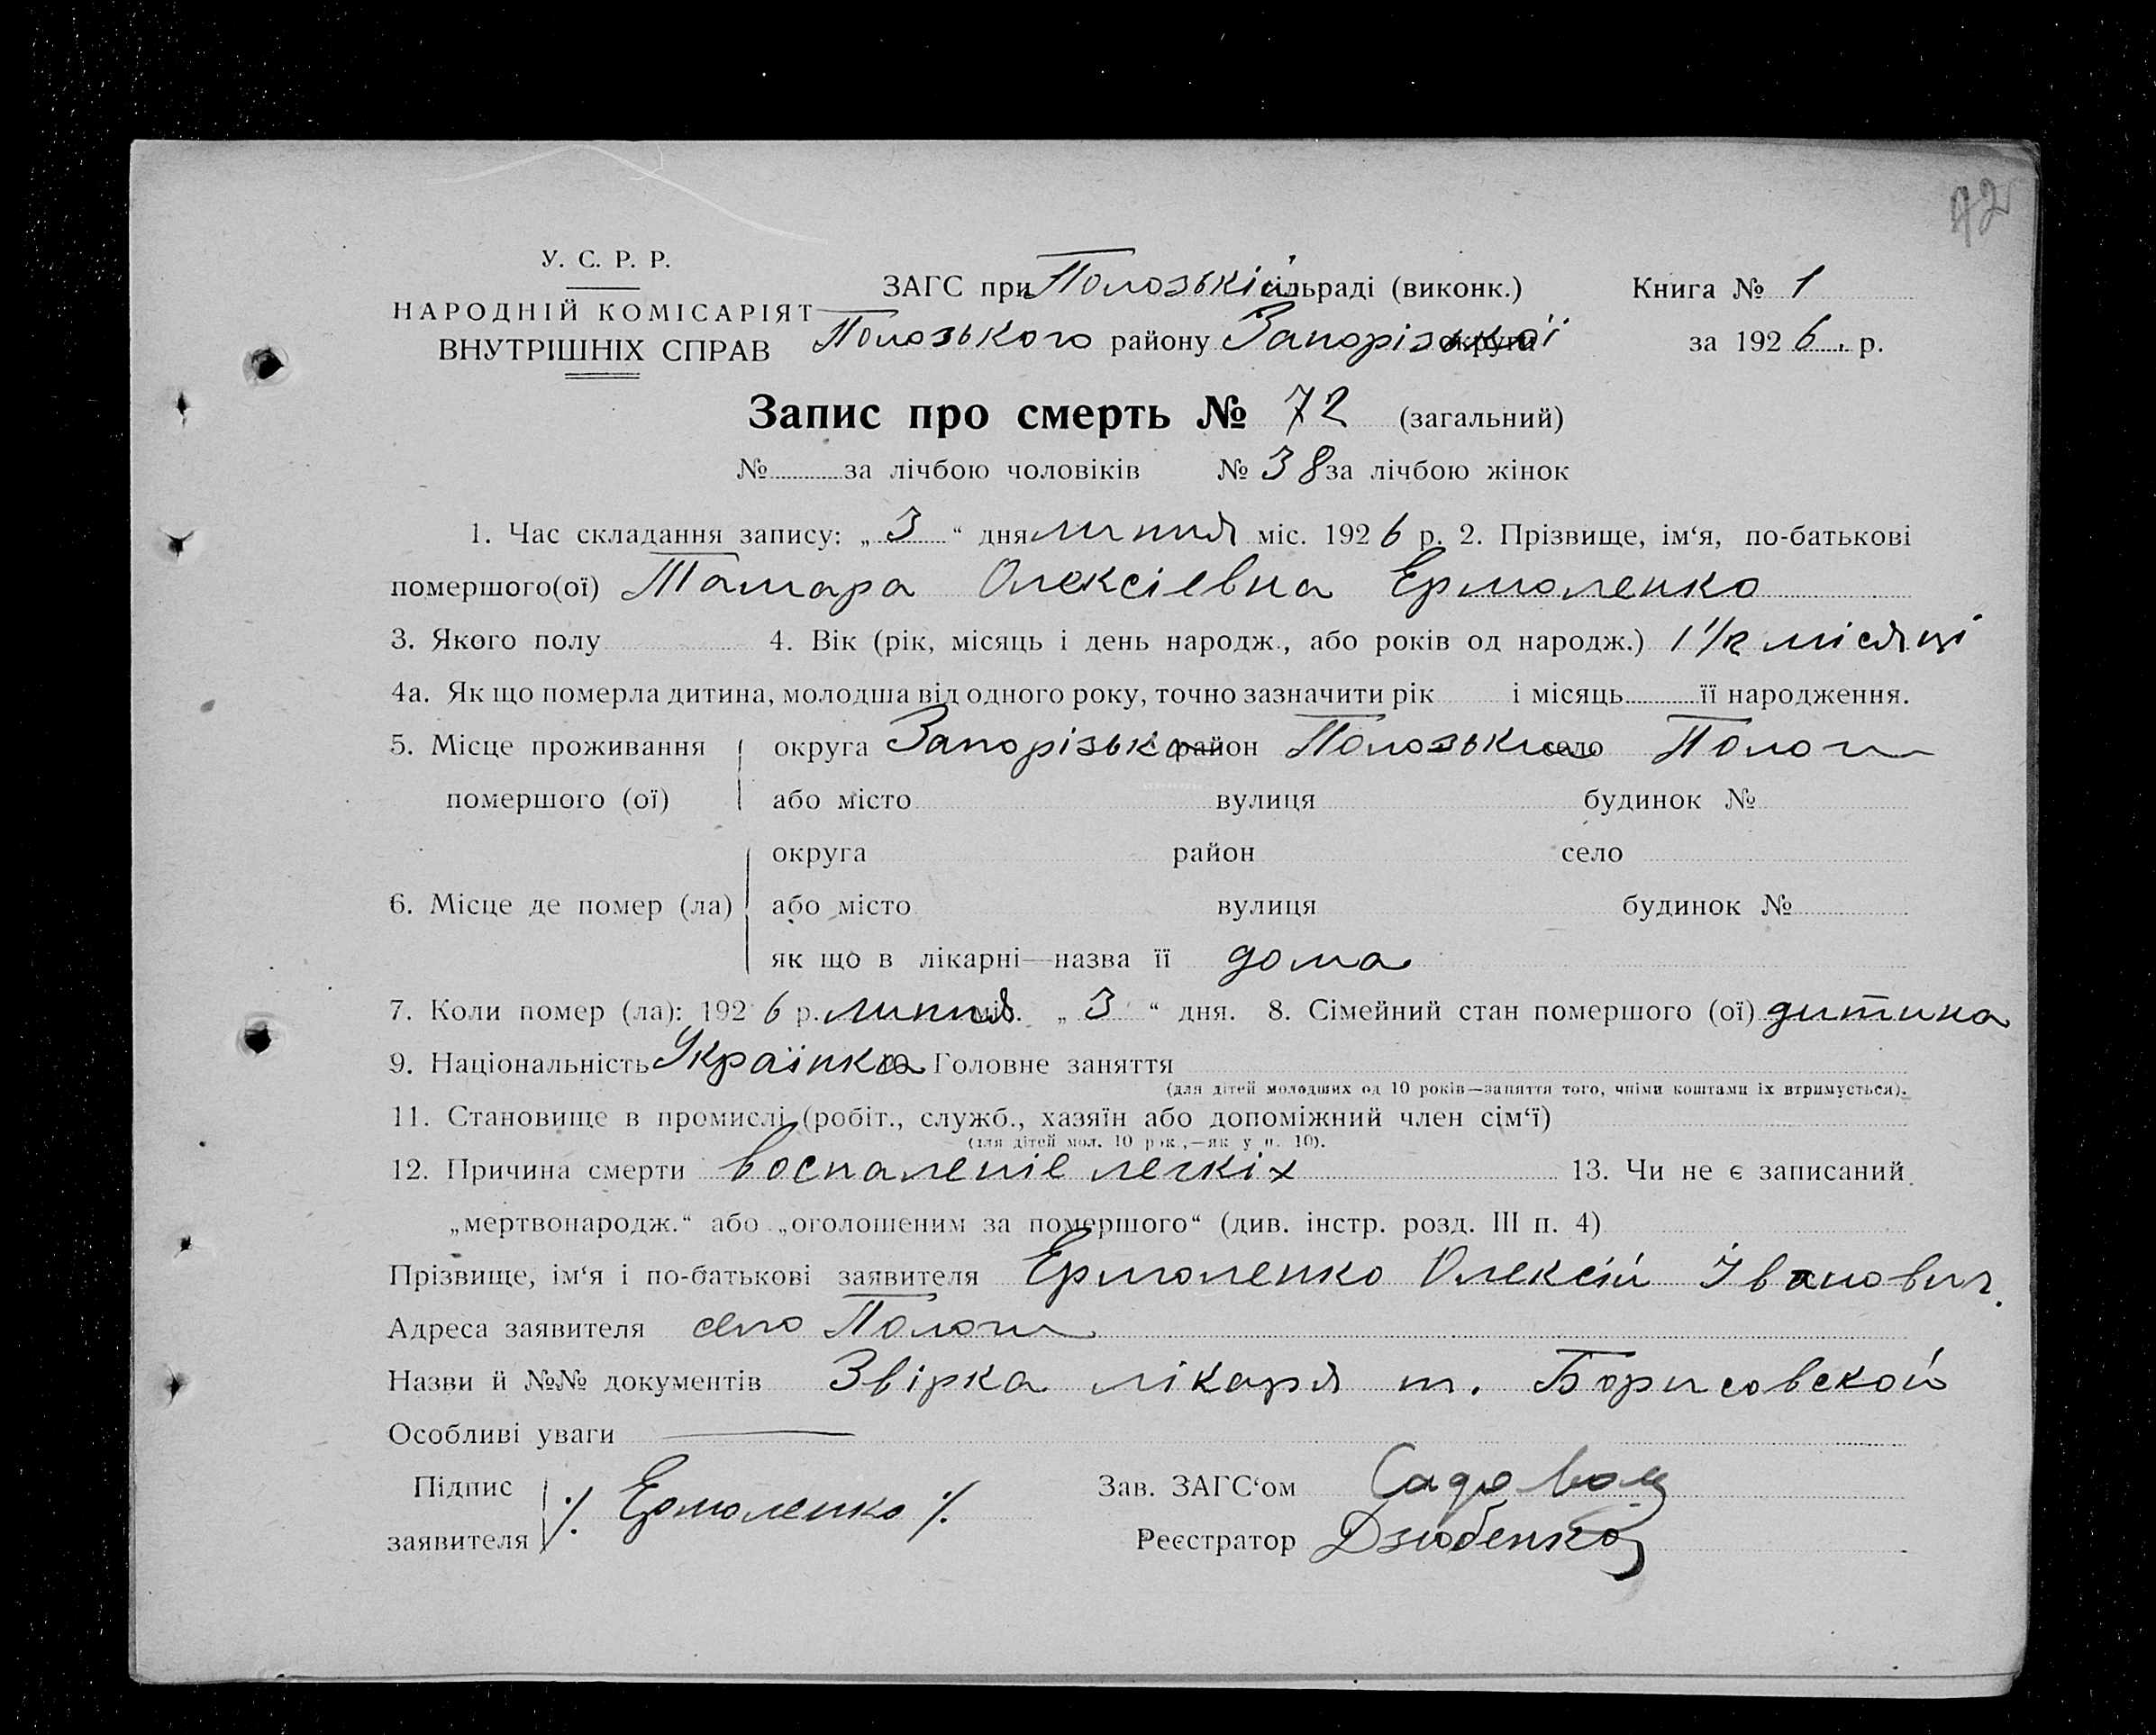 72
У. С. Р. Р.
НАРОДНІЙ КОМІСАРІЯТ
ВНУТРІШНІХ СПРАВ
ЗАГС при Полозькій сільраді (виконк.) Книга № 1
Полозького району Запорізької округи за 1926 р.
Запис про смерть № 72 (загальний)
№ за лічбою чоловіків № 38 за лічбою жінок
1. Час складання запису: „ 3 “ дня липня міс. 1926 р. 2. Прізвище, ім‘я, по-батькові
помершого(ої) Тамара Олексіевна Ермоленко
3. Якого полу 4. Вік (рік, місяць і день народж., або років од народж.) 1 1/2 місяці
4а. Як що померла дитина, молодша від одного року, точно зазначити рік і місяць її народження.
5. Місце проживання округа Запорізька район Полозький село Пологи
помершого (ої) або місто вулиця будинок №
округа район село
6. Місце де помер (ла) або місто вулиця будинок №
як що в лікарні—назва її дома
7. Коли помер (ла): 1926 р. липня міс. „ 3 “ дня. 8. Сімейний стан помершого (ої) дитина
9. Національність Українка Головне заняття
(для дітей молодших од 10 років—заняття того, чиїми коштами їх втримується).
11. Становище в промислі (робіт., служб., хазяїн або допоміжний член сім‘ї)
(для дітей мол. 10 рок.,—як у п. 10).
12. Причина смерти воспаленіе легкіх 13. Чи не є записаний
„мертвонародж.“ або „оголошеним за помершого“ (див. інстр. розд. III п. 4)
Прізвище, ім‘я і по-батькові заявителя Ермоленко Олексій Іванович.
Адреса заявителя село Пологи
Назви й №№ документів Звірка лікаря т. Борисовской
Особливі уваги —
Підпис Зав. ЗАГС‘ом
заявителя ·/. Ермоленко ·/. Реєстратор Дзюбенко